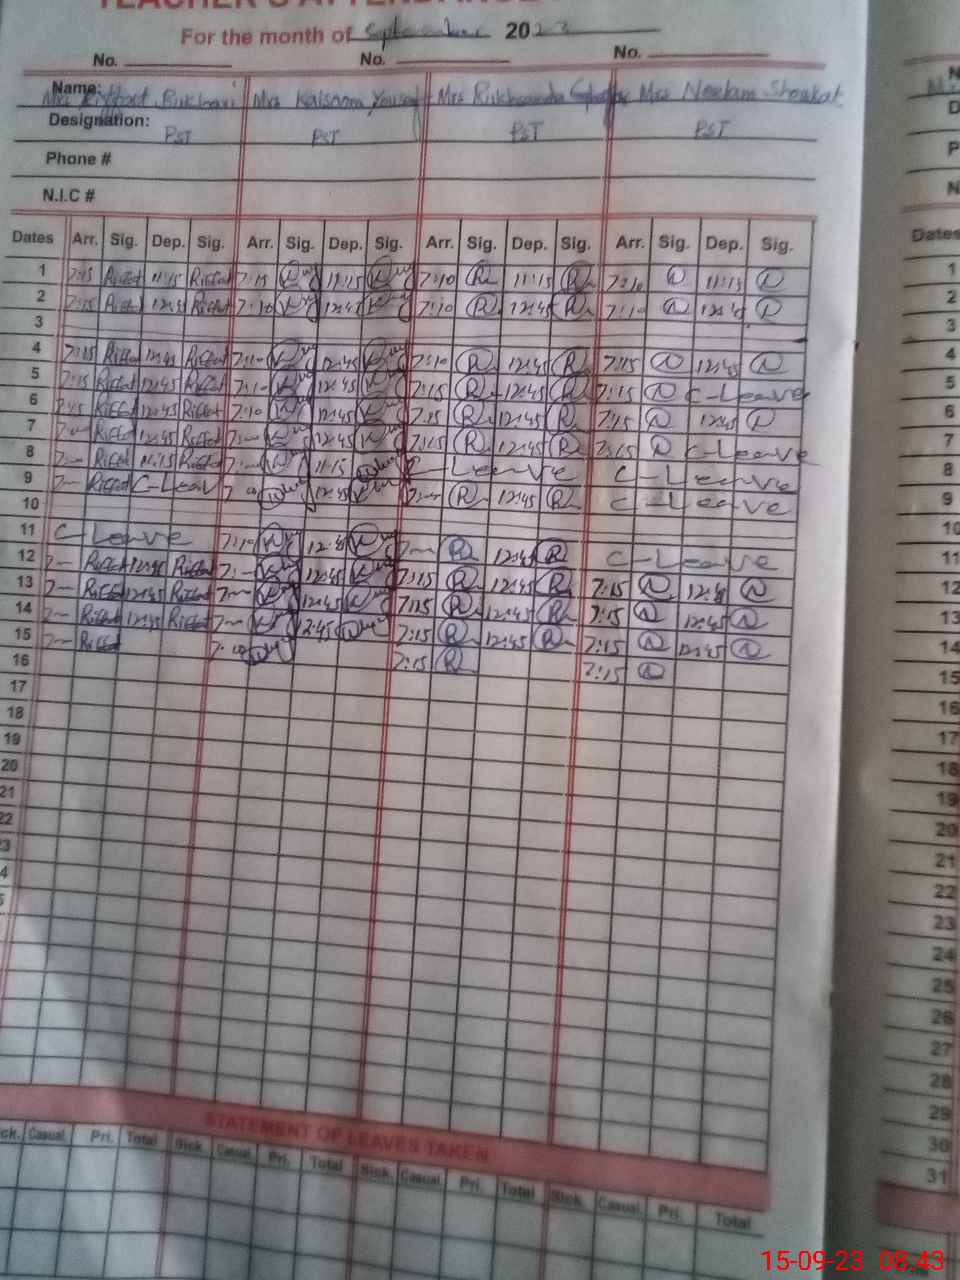 TEACHER'S ATTENDANCE
For the month of September 2023
No. No. No.
Name: Mrs Riffat Bukhari Mrs Kalsoom Yousaf Mrs Rukhsanda Mrs Neelam Shoukat
Designation: PST PST PST PST
Phone #
N.I.C #
Dates Arr. Sig. Dep. Sig. Arr. Sig. Dep. Sig. Arr. Sig. Dep. Sig. Arr. Sig. Dep. Sig. Dates
1 7:15 Riffat 11:15 Riffat 7:15 11:15 7:10 R 11:15 R 7:10 N 11:15 N 1
2 7:15 Riffat 12:45 Riffat 7:10 12:45 7:10 R 12:45 R 7:10 N 12:45 N 2
3 3
4 7:15 Riffat 12:45 Riffat 7:10 12:45 7:10 R 12:45 R 7:15 N 12:45 N 4
5 7:15 Riffat 12:45 Riffat 7:10 12:45 7:15 R 12:45 R 7:15 N C-Leave 5
6 7:15 Riffat 12:45 Riffat 7:10 12:45 7:15 R 12:45 R 7:15 N 12:45 N 6
7 7:— Riffat 12:45 Riffat 7:— 12:45 7:15 R 12:45 R 7:15 N C-Leave 7
8 7:— Riffat 11:15 Riffat 7:— 11:15 C-Leave C-Leave 8
9 7:— Riffat C-Leav 7:— 12:45 7:— R 12:45 R C-Leave 9
10 10
11 C Leave 7:10 12:45 7:— R 12:45 R C-Leave 11
12 7:— Riffat 12:45 Riffat 7:— 12:45 7:15 R 12:45 R 7:15 N 12:45 N 12
13 7:— Riffat 12:45 Riffat 7:— 12:45 7:15 R 12:45 R 7:15 N 12:45 N 13
14 7:— Riffat 12:45 Riffat 7:— 2:45 7:15 R 12:45 R 7:15 N 12:45 N 14
15 7:— Riffat 7:15 R 7:15 N 15
16 16
17 17
18 18
19 19
20 20
21 21
22 22
23 23
4 24
5 25
26
27
28
29
30
31
STATEMENT OF LEAVES TAKEN
ck. Casual Pri. Total Sick. Casual Pri. Total Sick. Casual Pri. Total Sick. Casual Pri. Total
15-09-23 08:43